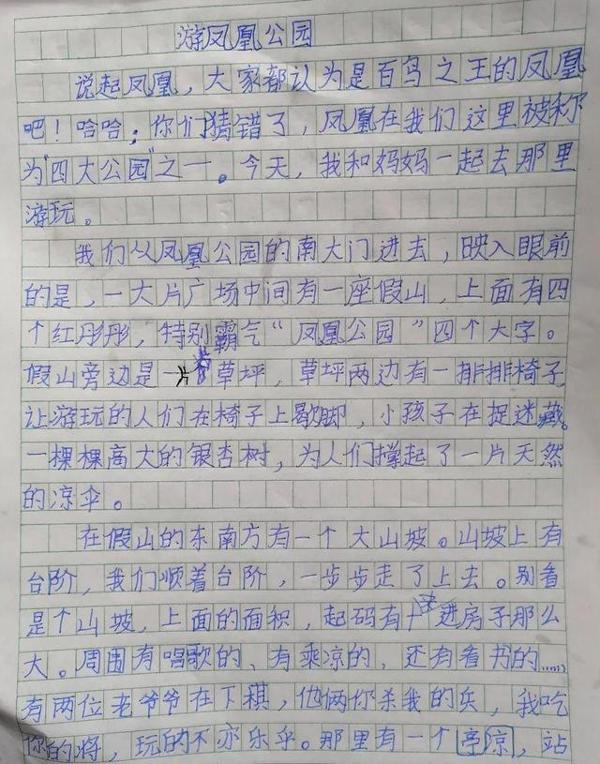 游凤凰公园
说起凤凰，大家都认为是百鸟之王的凤凰
吧！哈哈；你们猜错了，凤凰在我们这里被称
为"四大公园"之一。今天，我和妈妈一起去那里
游玩。
我们从凤凰公园的南大门进去，映入眼前
的是，一大片广场中间有一座假山，上面有四
个红彤彤，特别霸气"凤凰公园"四个大字。
假山旁边是一片草坪，草坪两边有一排排椅子
让游玩的人们在椅子上歇脚，小孩子在捉迷藏。
一棵棵高大的银杏树，为人们撑起了一片天然
的凉伞。
在假山的东南方有一个大山坡。山坡上有
台阶，我们顺着台阶，一步步走了上去。别看
是个山坡，上面的面积，起码有进房子那么
大。周围有唱歌的、有乘凉的，还有看书的……
有两位老爷爷在下棋，他俩你杀我的兵，我吃
你的将，玩的不亦乐乎。那里有一个亭凉，站